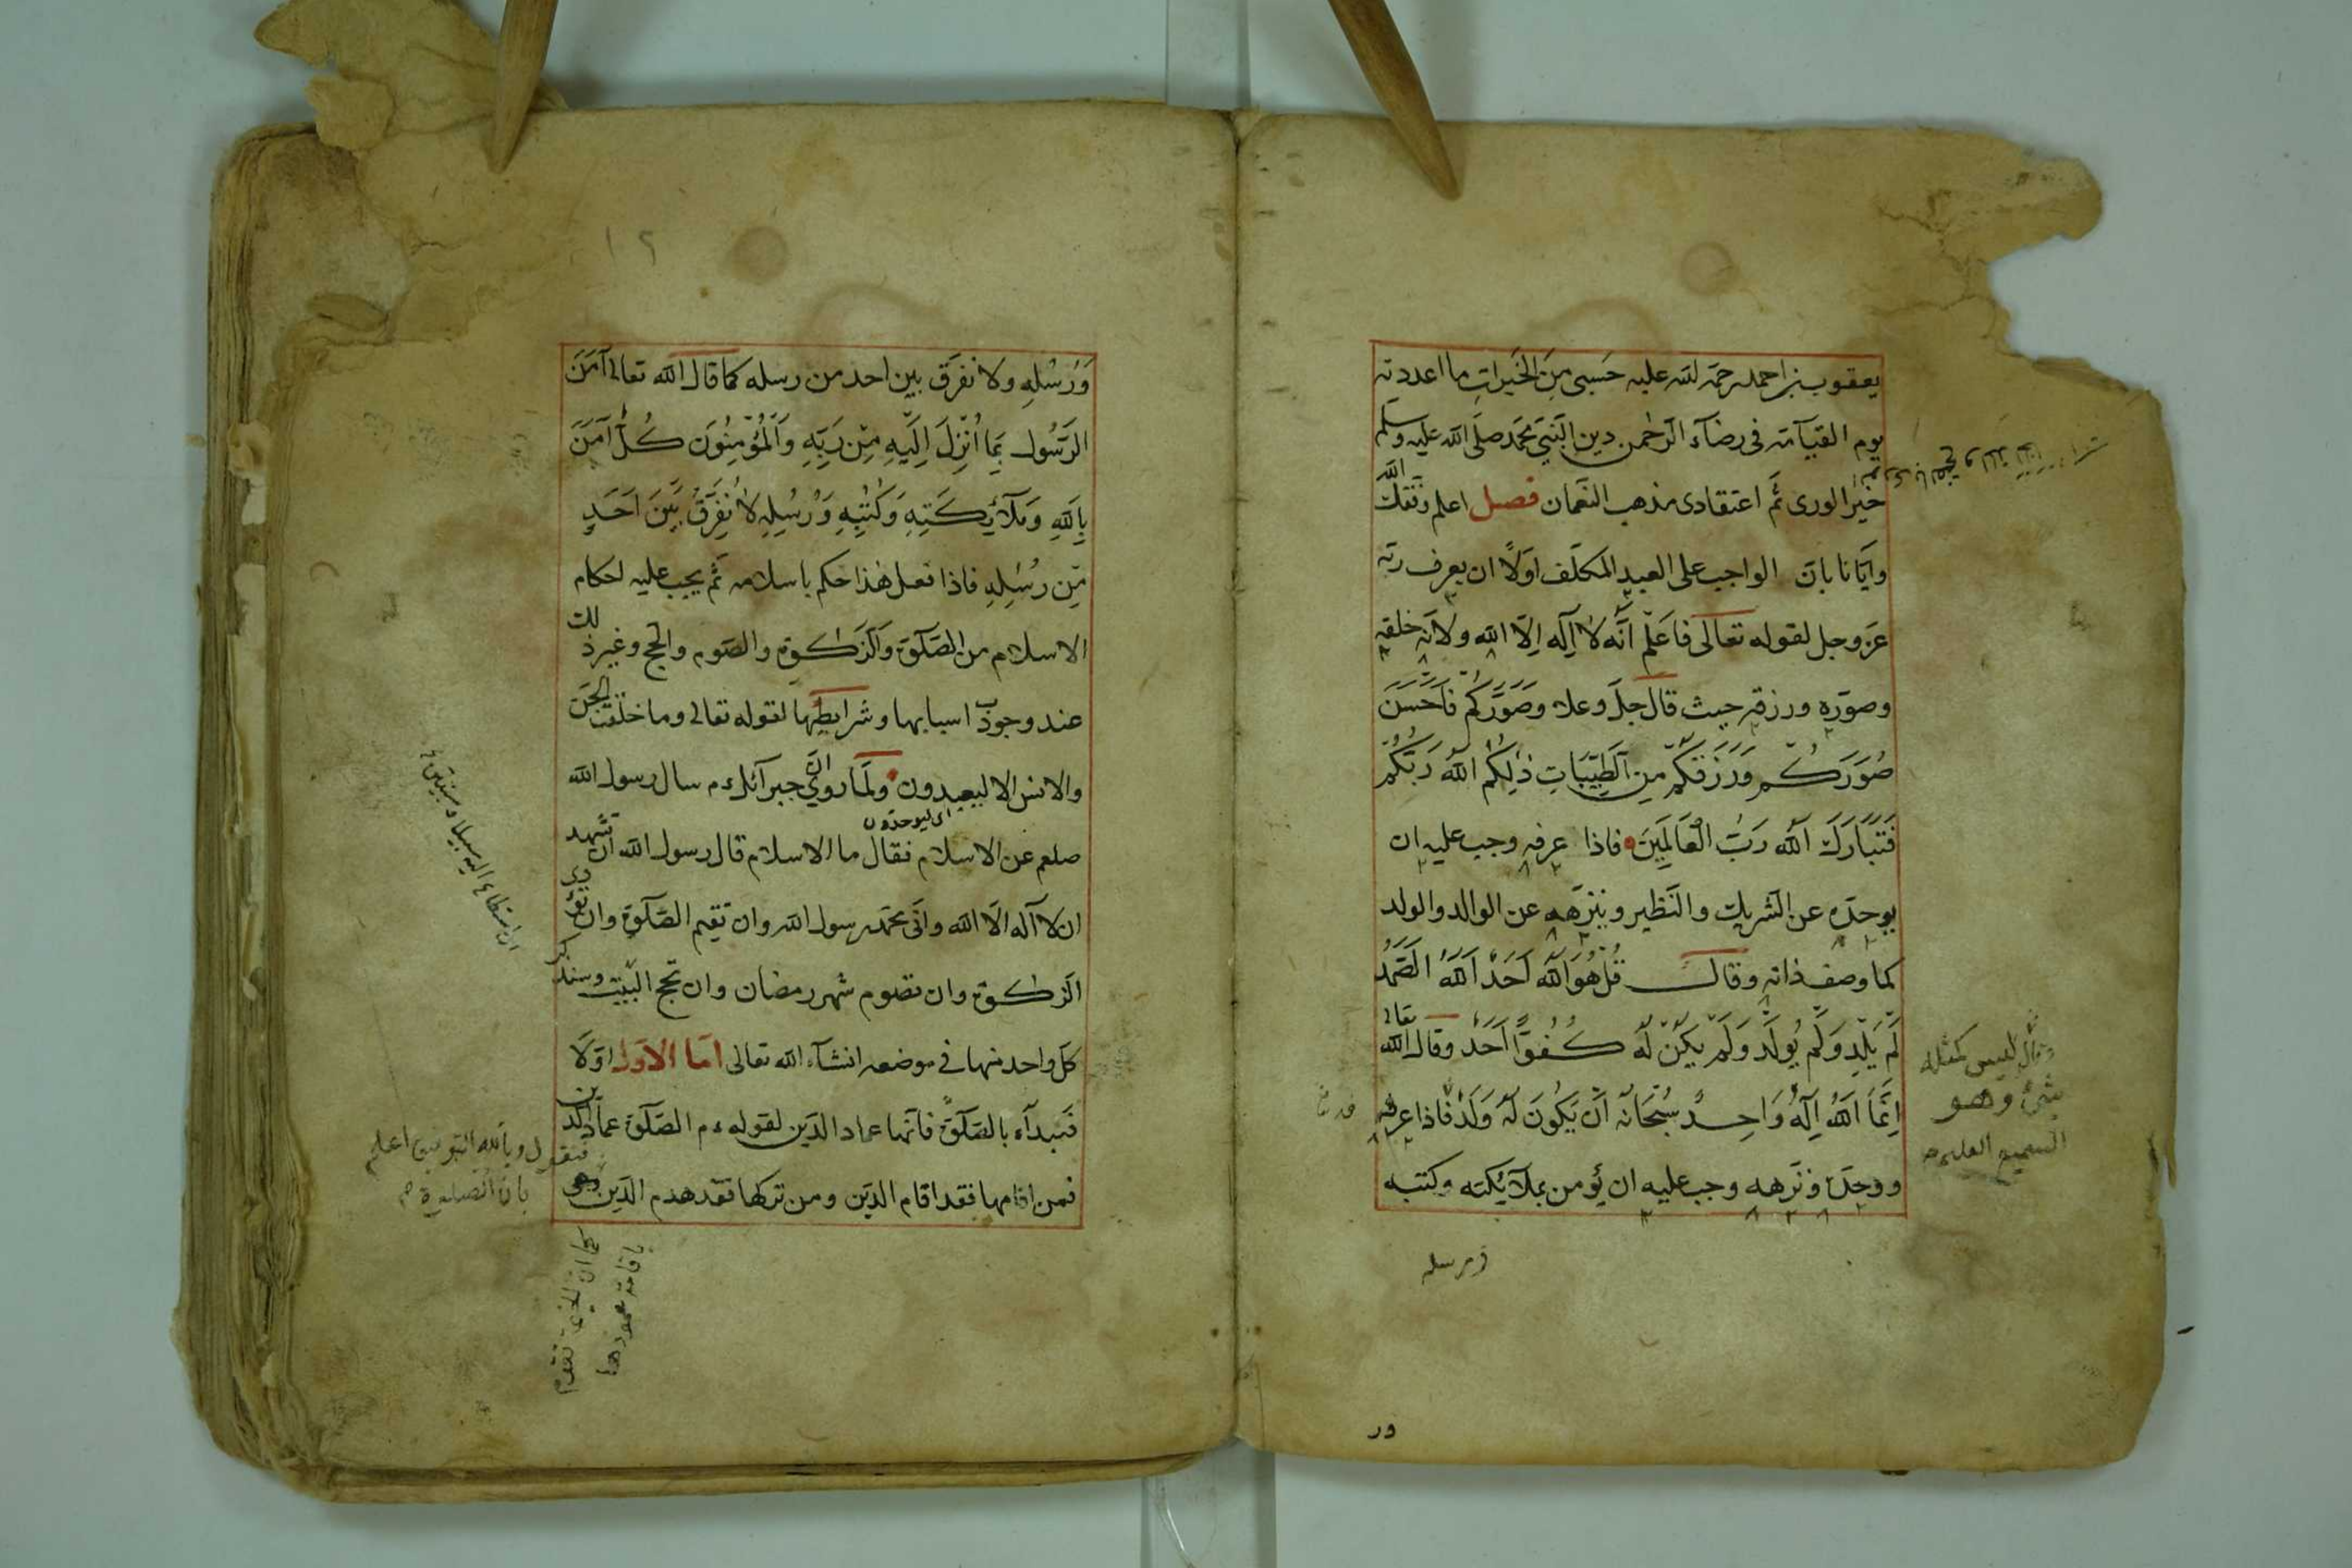 يعقوب بن احمد رحمة الله عليه حسبى مِنَ الخَيراتِ ما اعددته
يوم القيآمة فى رضآء الرّحمن دين النّبىّ محمّد صلّى الله عليه وسلم
خيرُ الورى ثمّ اعتقادى مذهب النّعمان فصل اعلم وفّقك الله
وايّانا بانّ الواجب على العبد المكلّف اوّلاً ان يعرف ربّه
عزّ وجل لقوله تعالى فَاعْلَمْ اَنَّه لا اِلٓه اِلّا الله ولانّه خلقه
وصوّره ورزقه حيث قال جلّ وعلا وَصَوَّرَكُمْ فَاَحْسَنَ
صُوَرَكُمْ وَرَزَقَكُمْ مِنَ الطَّيِّبَاتِ ذٰلِكُمُ اللهُ رَبُّكُمْ
فَتَبَارَكَ اللهُ رَبُّ الْعَالَمِينَ فاذا عرفه وجب عليه ان
يوحدّه عن الشّريك والنّظير وينزّهه عن الوالد والولد
كما وصف ذاته وقال قُلْ هُوَ اللهُ اَحَدٌ اَللهُ الصَّمَدُ
لَمْ يَلِدْ وَلَمْ يُولَدْ وَلَمْ يَكُنْ لَهُ كُفُوًا اَحَدٌ وقال الله تعالى
اِنَّمَا اللهُ اِلٓهٌ وَاحِدٌ سُبْحَانَهُ اَنْ يَكُونَ لَهُ وَلَدٌ فاذا عرفه
ووحدّه ونزّهه وجب عليه ان يؤمن بملآئكته وكتبه
ليس كمثله
شئ وهو
السميع العليم
ورسله
ور
١٢
وَرُسُلِهِ ولا نفرّق بين احد من رسله كما قال الله تعالى آمَنَ
الرَّسُولُ بِمَا اُنْزِلَ اِلَيْهِ مِنْ رَبِّهِ وَالْمُؤْمِنُونَ كُلٌّ آمَنَ
بِاللهِ وَمَلآئِكَتِهِ وَكُتُبِهِ وَرُسُلِهِ لا نُفَرِّقُ بَيْنَ اَحَدٍ
مِنْ رُسُلِهِ فاذا فعل هٰذا حكم باسلامه ثمّ يجب عليه احكام
الاسلام من الصّلٓوة والزّكوة والصّوم والحج وغير ذلك
عند وجود اسبابها وشرايطها لقوله تعالى وما خلقت الجنّ
والانس الا ليعبدون ولما روى انّ جبرآئل ءم سال رسول الله
اى ليوحدّون
صلعم عن الاسلام فقال ما الاسلام قال رسول الله ان تشهد
ان لا آله الّا الله وانّى محمّد رسول الله وان تقيم الصّلٓوة وان تؤدى
الزكوة وان تصوم شهر رمضان وان تحج البيت وسنذكر
كلّ واحد منها فى موضعه انشآء الله تعالى امّا الاوّل اوّلا
فنبدآء بالصّلٓوة فانّها عماد الدّين لقوله ءم الصّلٓوة عماد الدين
فمن اقامها فقد اقام الدّين ومن تركها فقد هدم الدّين
ان استطاع اليه سبيلا
فنقول وبالله التوفيق اعلم
بان الصلوة
باقامة عمودها